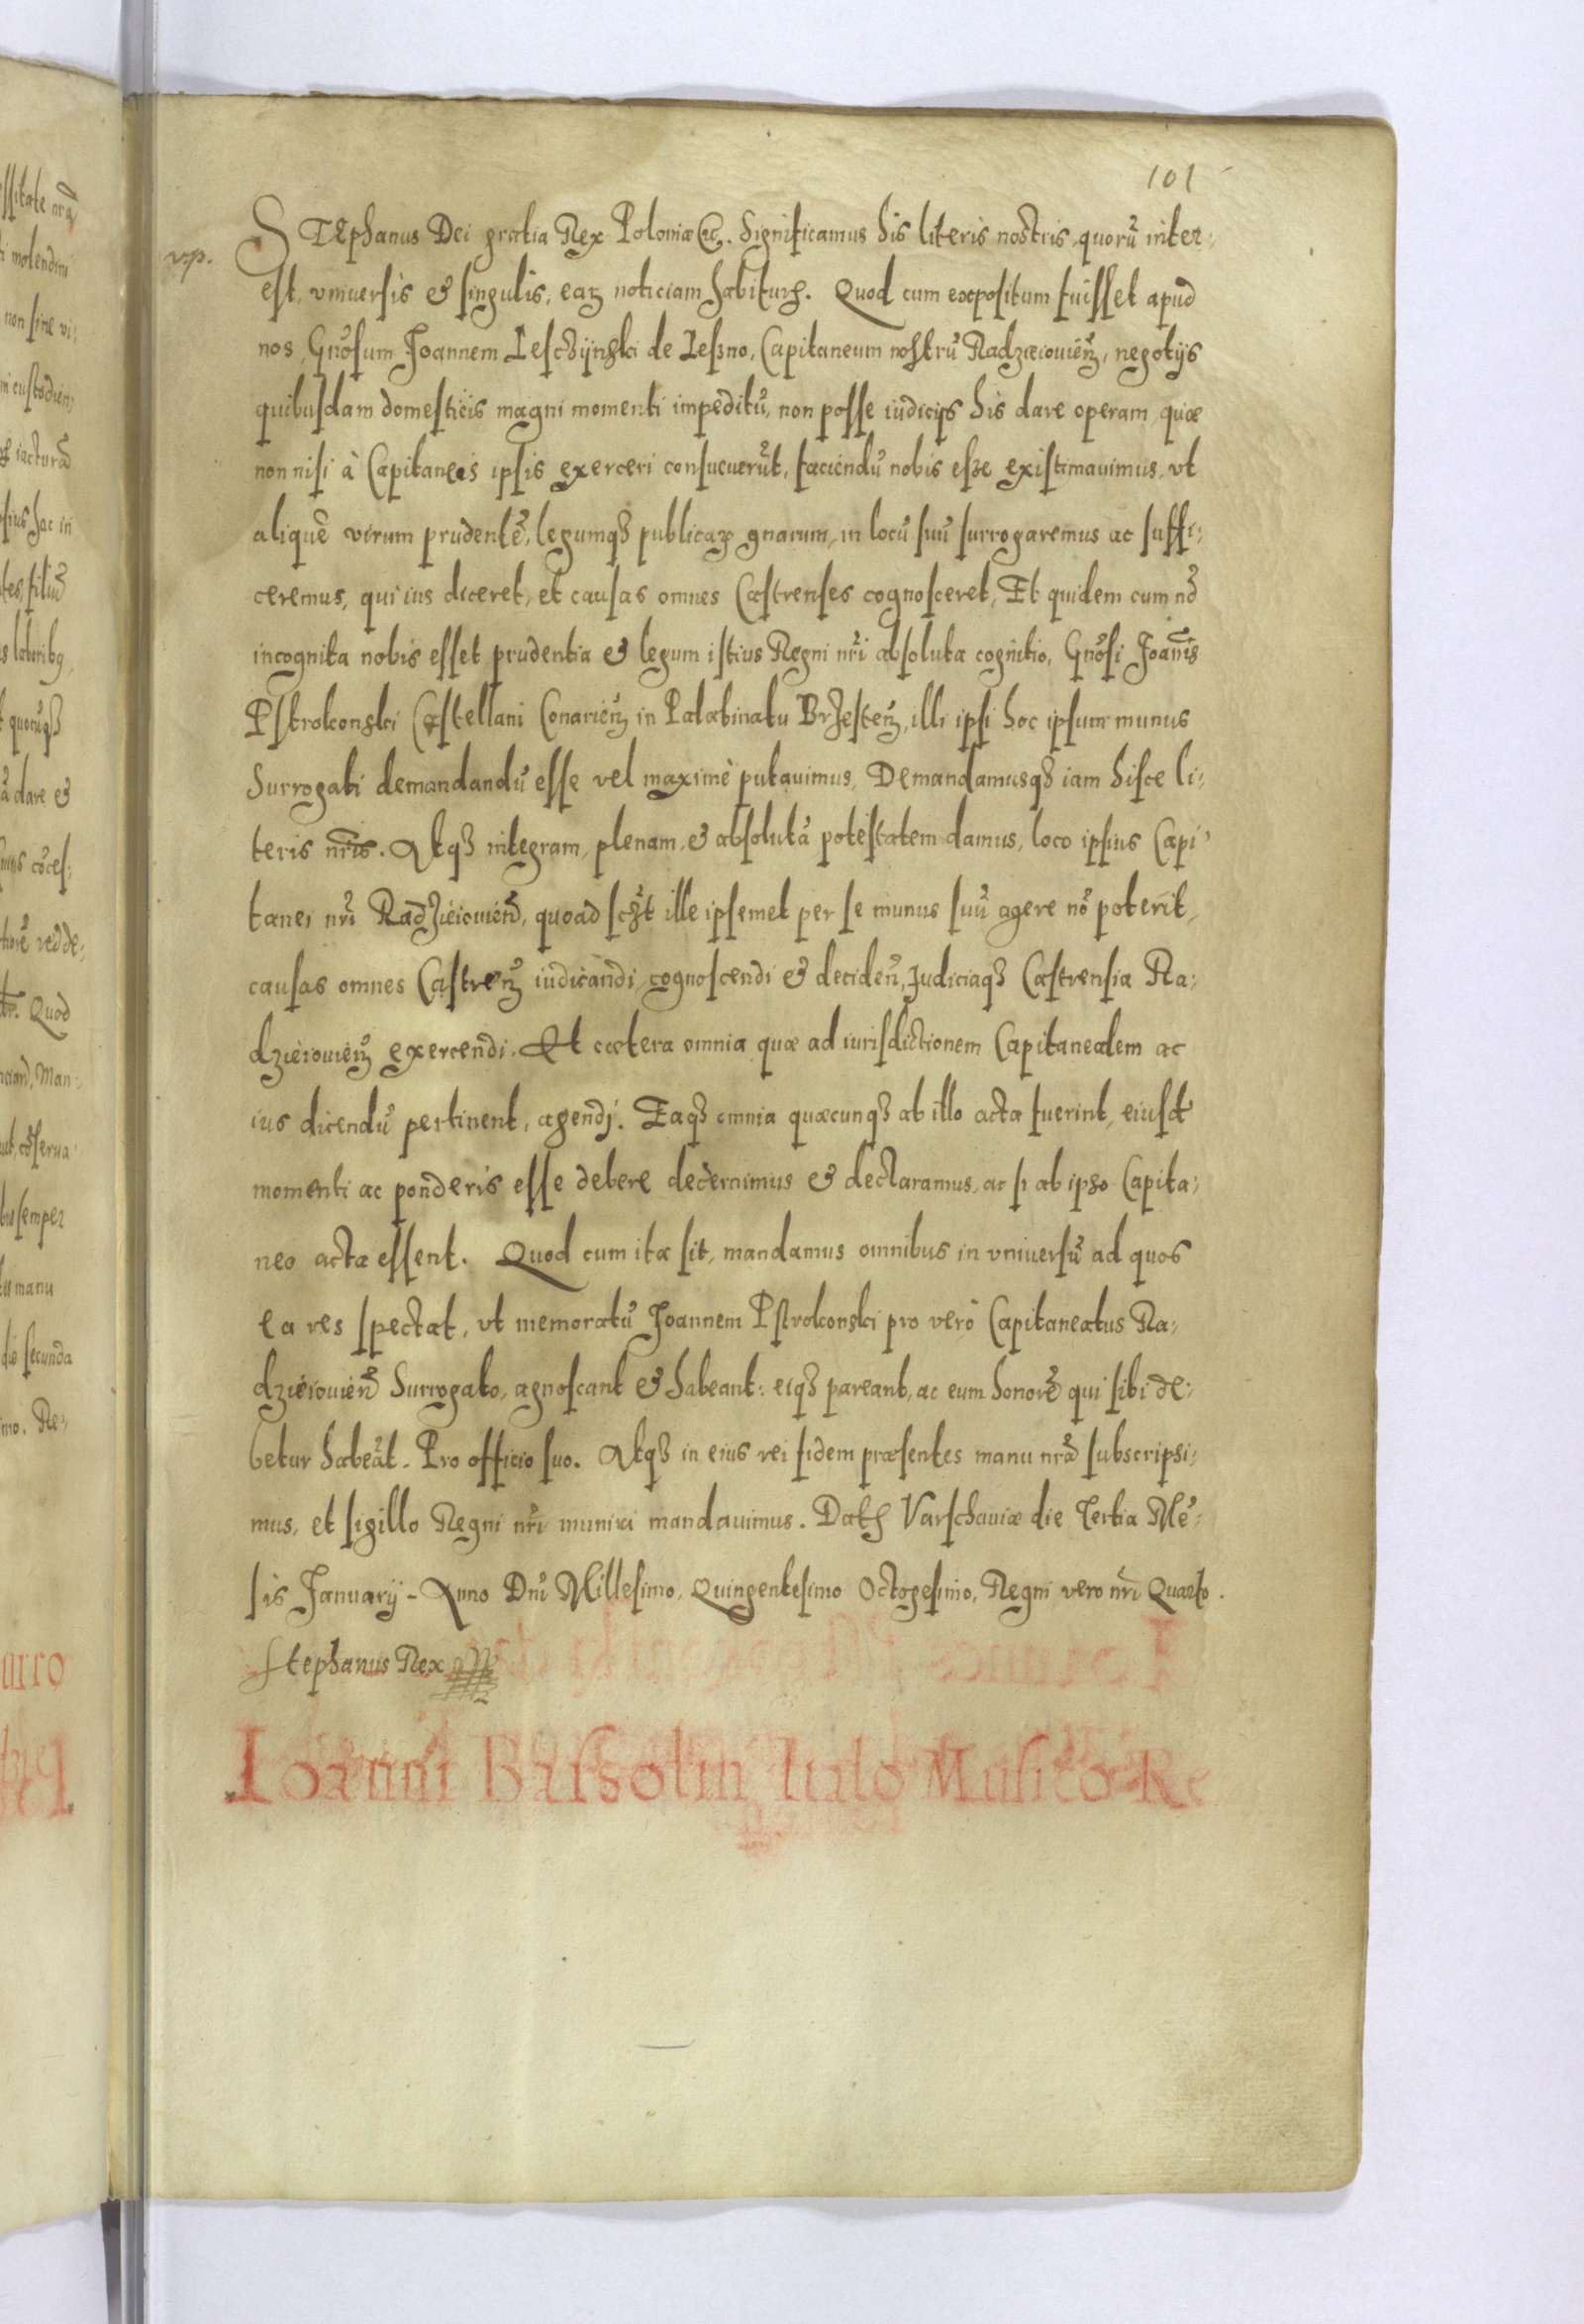 101
v.p.
STEphanus Dei gratia Rex Poloniæ &c. Significamus his literis nostris, quorũ inter:
est, vniuersis & singulis, eaꝝ noticiam habituris. Quod cum expositum fuisset apud
nos, Gñosum Joannem Lesczÿnski de Leszno, Capitaneum nostrũ Radzieiouień, negotijs
quibusdam domesticis magni momenti impeditũ, non posse iudicijs his dare operam, quæ
non nisi à Capitaneis ipsis exerceri consueuerũt, faciendũ nobis esse existimauimus, vt
aliquẽ virum prudentẽ, legumqȝ publicaꝝ gnarum, in locũ suũ surrogaremus ac suffi:
ceremus, qui ius diceret, et causas omnes Castrenses cognosceret, Et quidem cum nõ
incognita nobis esset prudentia & legum istius Regni nři absoluta cognitio, Gñosi Joañis
Pstrokonski Castellani Conarień in Palatinatu Brzesteń, illi ipsi hoc ipsum munus
Surrogati demandandũ esse vel maximè putauimus, Demandamusqȝ iam hisce li:
teris nřis. Atqȝ integram, plenam, & absolutã potestatem damus, loco ipsius Capi:
tanei nři Radzieiouień, quoad ille ipsemet per se munus suũ agere nõ poterit,
causas omnes Castreń iudicandi, cognoscendi & decideñ, Judiciaqȝ Castrensia Ra:
dzieiouień exercendi. Et cætera omnia quæ ad iurisdictionem Capitanealem ac
ius dicendũ pertinent, agendj. Eaqȝ omnia quæcunqȝ ab illo acta fuerint, eiusd
momenti ac ponderis esse debere decernimus & declaramus, ac si ab ipso Capita:
neo acta essent. Quod cum ita sit, mandamus omnibus in vniuersũ ad quos
ea res spectat, vt memoratũ Joannem Pstrokonski pro vero Capitaneatus Ra:
dzieiouień Surrogato, agnoscant & habeant: eiqȝ pareant, ac eum honorẽ qui sibi de:
betur habeãt. Pro officio suo. Atqȝ in eius rei fidem præsentes manu nřa subscripsi:
mus, et sigillo Regni nři muniri mandauimus. Dat Varschauiæ die tertia Mẽ:
sis Januarij - Anno Dñi Millesimo, Quingentesimo Octogesimo, Regni vero nři Quarto.
Stephanus Rex
Ioanni Bassolin Italo Musico Re